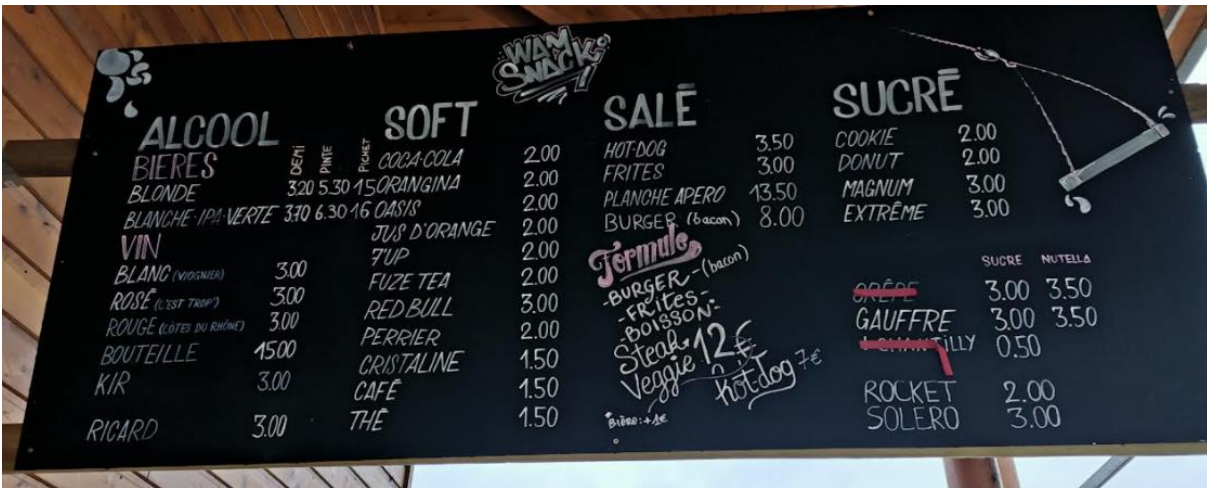 WAM
SNACK!
ALCOOL
BIERES DEMI PINTE PICHET
BLONDE 3.20 5.30 15
BLANCHE-IPA-VERTE 3.70 6.30 16
VIN
BLANC (VIOGNIER) 3.00
ROSÉ (C'EST TROP') 3.00
ROUGE (CÔTES DU RHÔNE) 3.00
BOUTEILLE 15.00
KIR 3.00
RICARD 3.00
SOFT
COCA-COLA 2.00
ORANGINA 2.00
OASIS 2.00
JUS D'ORANGE 2.00
7'UP 2.00
FUZE TEA 2.00
RED BULL 3.00
PERRIER 2.00
CRISTALINE 1.50
CAFÉ 1.50
THÉ 1.50
SALÉ
HOT-DOG 3.50
FRITES 3.00
PLANCHE APERO 13.50
BURGER (bacon) 8.00
Formule
-BURGER-(bacon)
-FRITES-
-BOISSON-
Steak 12€
Veggie
hotdog 7€
BIÈRE: +1€
SUCRÉ
COOKIE 2.00
DONUT 2.00
MAGNUM 3.00
EXTRÊME 3.00
SUCRE NUTELLA
CRÊPE 3.00 3.50
GAUFFRE 3.00 3.50
+ CHANTILLY 0.50
ROCKET 2.00
SOLERO 3.00